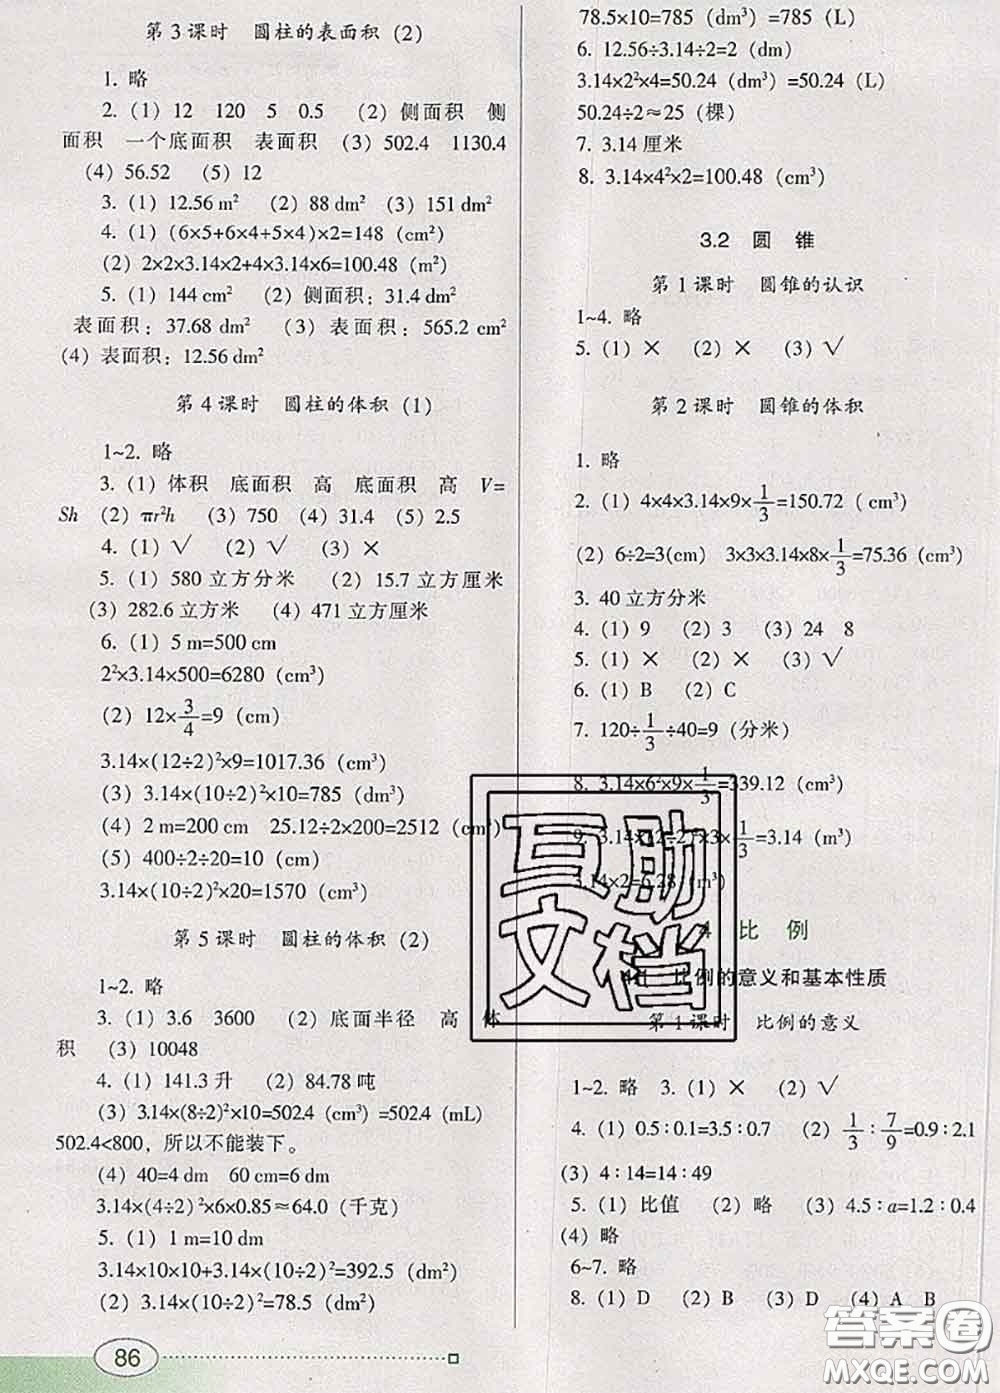 第3课时 圆柱的表面积 (2)
1. 略
2. (1) 12 120 5 0.5 (2) 侧面积 侧
面积 一个底面积 表面积 (3) 502.4 1130.4
(4) 56.52 (5) 12
3. (1) 12.56 m² (2) 88 dm² (3) 151 dm²
4. (1) (6×5+6×4+5×4)×2=148 (cm²)
(2) 2×2×3.14×2+4×3.14×6=100.48 (m²)
5. (1) 144 cm² (2) 侧面积: 31.4 dm²
表面积: 37.68 dm² (3) 表面积: 565.2 cm²
(4) 表面积: 12.56 dm²
第4课时 圆柱的体积 (1)
1~2. 略
3. (1) 体积 底面积 高 底面积 高 V=
Sh (2) πr²h (3) 750 (4) 31.4 (5) 2.5
4. (1) √ (2) √ (3) ×
5. (1) 580 立方分米 (2) 15.7 立方厘米
(3) 282.6 立方米 (4) 471 立方厘米
6. (1) 5 m=500 cm
2²×3.14×500=6280 (cm³)
(2) 12×3/4=9 (cm)
3.14×(12÷2)²×9=1017.36 (cm³)
(3) 3.14×(10÷2)²×10=785 (dm³)
(4) 2 m=200 cm 25.12÷2×200=2512 (cm³)
(5) 400÷2÷20=10 (cm)
3.14×(10÷2)²×20=1570 (cm³)
第5课时 圆柱的体积 (2)
1~2. 略
3. (1) 3.6 3600 (2) 底面半径 高 体
积 (3) 10048
4. (1) 141.3 升 (2) 84.78 吨
(3) 3.14×(8÷2)²×10=502.4 (cm³) =502.4 (mL)
502.4<800, 所以不能装下。
(4) 40=4 dm 60 cm=6 dm
3.14×(4÷2)²×6×0.85≈64.0 (千克)
5. (1) 1 m=10 dm
3.14×10×10+3.14×(10÷2)²=392.5 (dm²)
(2) 3.14×(10÷2)²=78.5 (dm²)
86
78.5×10=785 (dm³) =785 (L)
6. 12.56÷3.14÷2=2 (dm)
3.14×2²×4=50.24 (dm³) =50.24 (L)
50.24÷2≈25 (棵)
7. 3.14 厘米
8. 3.14×4²×2=100.48 (cm³)
3.2 圆 锥
第1课时 圆锥的认识
1~4. 略
5. (1) × (2) × (3) √
第2课时 圆锥的体积
1. 略
2. (1) 4×4×3.14×9×1/3=150.72 (cm³)
(2) 6÷2=3(cm) 3×3×3.14×8×1/3=75.36 (cm³)
3. 40 立方分米
4. (1) 9 (2) 3 (3) 24 8
5. (1) × (2) × (3) √
6. (1) B (2) C
7. 120÷1/3÷40=9 (分米)
8. 3.14×6²×9×1/3=339.12 (cm³)
9. 3.14×(2÷2)²×3×1/3=3.14 (m³)
3.14×2=6.28 (m³)
4 比 例
4.1 比例的意义和基本性质
第1课时 比例的意义
1~2. 略 3. (1) × (2) √
4. (1) 0.5∶0.1=3.5∶0.7 (2) 1/3∶7/9=0.9∶2.1
(3) 4∶14=14∶49
5. (1) 比值 (2) 略 (3) 4.5∶a=1.2∶0.4
(4) 略
6~7. 略
8. (1) D (2) B (3) D (4) A B
互助
文档
答案圈
MXQE.COM